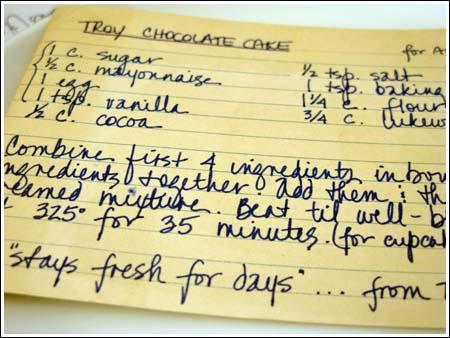 TROY CHOCOLATE CAKE
for A
1 c. sugar
½ c. mayonnaise
1 egg
1 tsp. vanilla
½ c. cocoa
½ tsp. salt
1 tsp. baking
1¼ c. flour
¾ c. lukew
Combine first 4 ingredients in bow
ngredients together. Add them & th
reamed mixture. Beat til well-b
325° for 35 minutes. (for cupcak
"stays fresh for days" ... from T